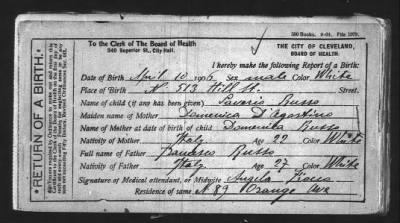 500 Books. 9-04. File 1079.
To the Clerk of The Board of Health
340 Superior St., City Hall.
THE CITY OF CLEVELAND,
BOARD OF HEALTH.
I hereby make the following Report of a Birth:
Date of Birth April 10 1906 Sex male Color White
Place of Birth N. 513 Hill St. Street.
Name of child (if any has been given) Saverio Russo
Maiden name of Mother Domenica D'Agostino
Name of Mother at date of birth of child Domenika Russo
Nativity of Mother Italy Age 22 Color White
Full name of Father Francesco Russo
Nativity of Father Italy Age 27 Color White
Signature of Medical attendant, or Midwife Angela
Residence of same N 89 Orange Ave
RETURN OF A BIRTH.